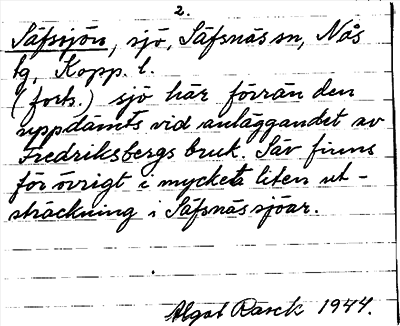 2.
Säfssjön, sjö, Säfsnäs sn, Nås
tg, Kopp. l.
(forts.) sjö här förrän den
uppdämts vid anläggandet av
Fredriksbergs bruk. Säv finns
för övrigt i mycket liten ut-
sträckning i Säfsnässjöar.
Algot Rasck 1944.